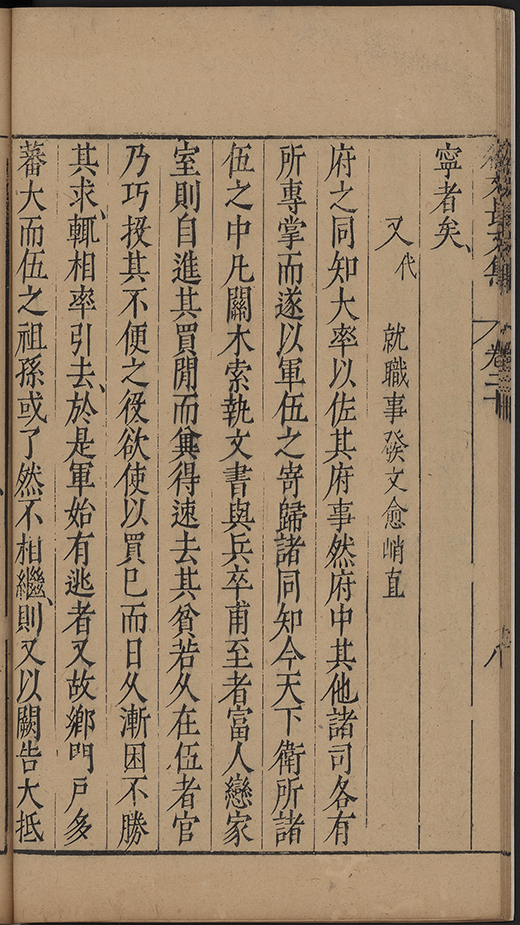 徐文長文集 卷二十 八
寧者矣、
又代 就職事發文愈峭直
府之同知大率以佐其府事然府中其他諸司各有
所專掌而遂以軍伍之寄歸諸同知今天下衛所諸
伍之中凡關木索執文書與兵卒甫至者富人戀家
室則自進其買閒而兾得速去其貧若久在伍者官
乃巧投其不便之役欲使以買已而日久漸困不勝
其求、輒相率引去、於是軍始有逃者又故鄉門戸多
蕃大而伍之祖孫或了然不相繼、則又以闕告大抵